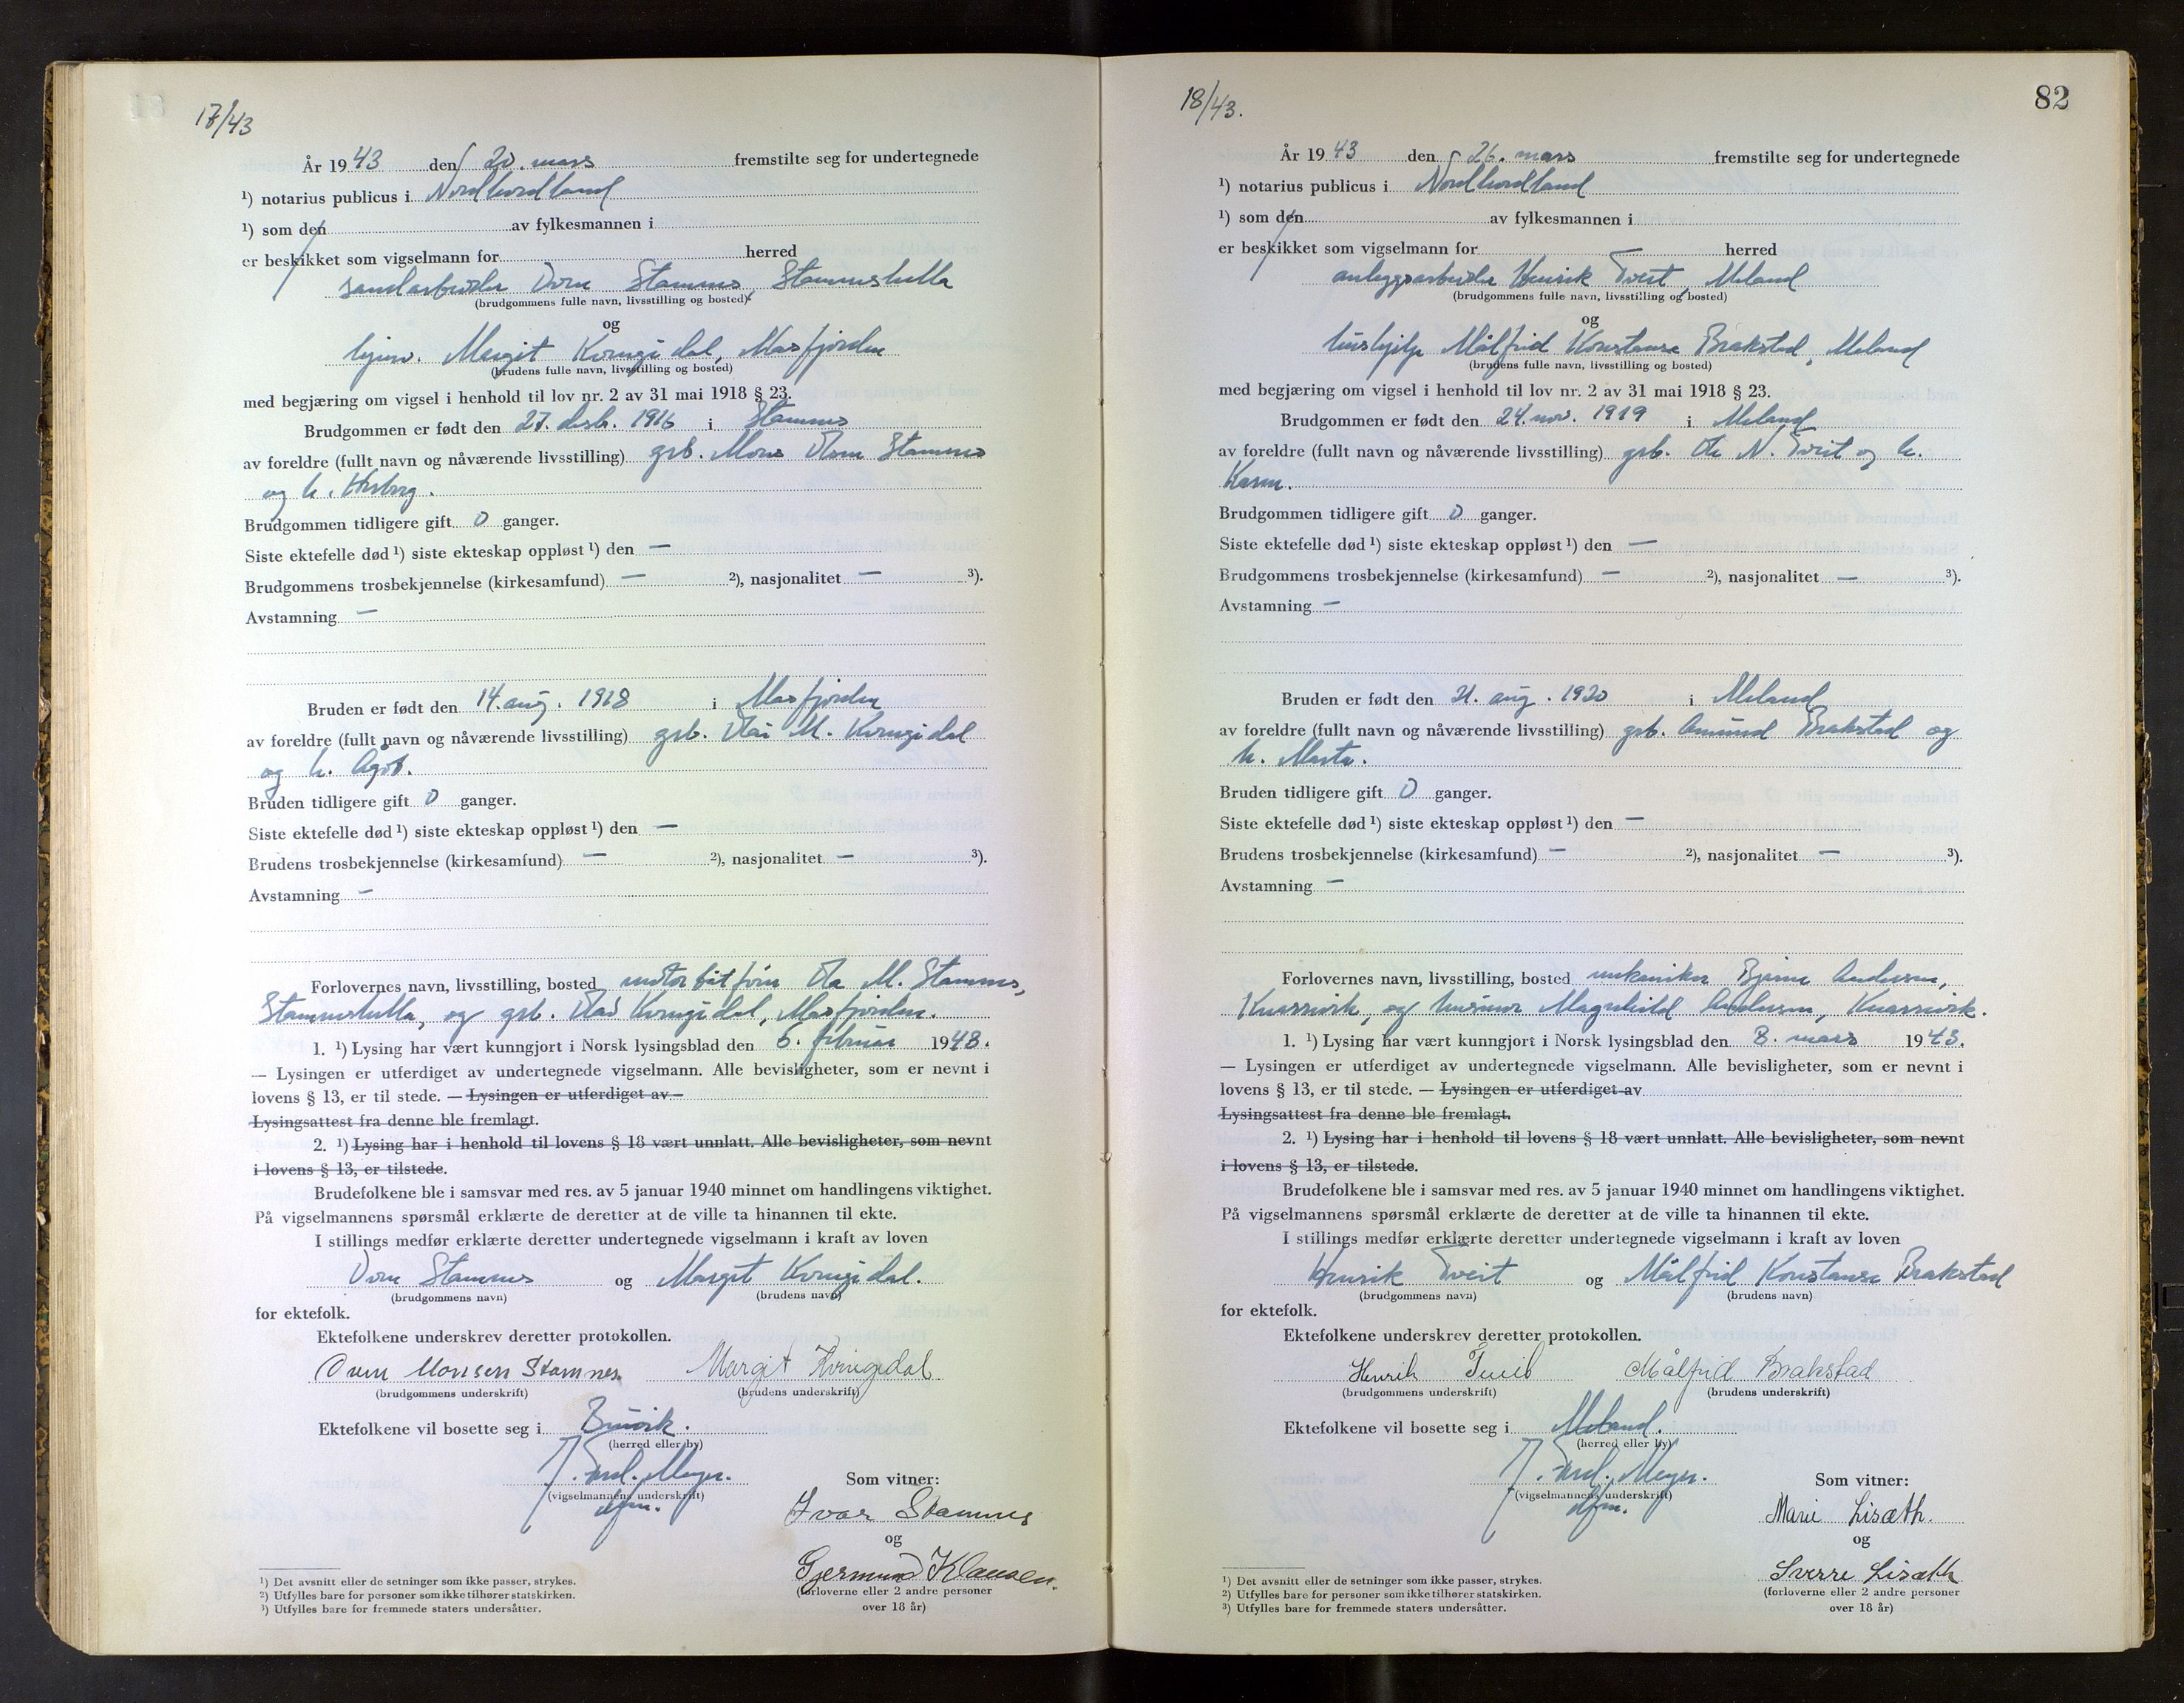 17/43
År 1943 den 20. mars fremstilte seg for undertegnede
¹) notarius publicus i Nordhordland
¹) som den av fylkesmannen i
er beskikket som vigselmann for herred
Stamnes, Stamneshella
(brudgommens fulle navn, livsstilling og bosted)
og
hjem. Margit Kvingedal, Masfjorden
(brudens fulle navn, livsstilling og bosted)
med begjæring om vigsel i henhold til lov nr. 2 av 31 mai 1918 § 23.
Brudgommen er født den 27. desb. 1916 i Stamnes
av foreldre (fullt navn og nåværende livsstilling) grb. Mons Stamnes
og h.
Brudgommen tidligere gift 0 ganger.
Siste ektefelle død ¹) siste ekteskap oppløst ¹) den —
Brudgommens trosbekjennelse (kirkesamfund) — ²), nasjonalitet — ³).
Avstamning —
Bruden er født den 14. aug. 1918 i Masfjorden
av foreldre (fullt navn og nåværende livsstilling) grb. M. Kvingedal
og h.
Bruden tidligere gift 0 ganger.
Siste ektefelle død ¹) siste ekteskap oppløst ¹) den —
Brudens trosbekjennelse (kirkesamfund) — ²), nasjonalitet — ³).
Avstamning —
Forlovernes navn, livsstilling, bosted Ola M. Stamnes,
Stamneshella, og grb. Kvingedal, Masfjorden.
1. ¹) Lysing har vært kunngjort i Norsk lysingsblad den 6. februar 1943.
— Lysingen er utferdiget av undertegnede vigselmann. Alle bevisligheter, som er nevnt i
lovens § 13, er til stede. — Lysingen er utferdiget av
Lysingsattest fra denne ble fremlagt.
2. ¹) Lysing har i henhold til lovens § 18 vært unnlatt. Alle bevisligheter, som nevnt
i lovens § 13, er tilstede.
Brudefolkene ble i samsvar med res. av 5 januar 1940 minnet om handlingens viktighet.
På vigselmannens spørsmål erklærte de deretter at de ville ta hinannen til ekte.
I stillings medfør erklærte deretter undertegnede vigselmann i kraft av loven
Stamnes og Margit Kvingedal.
(brudgommens navn) (brudens navn)
for ektefolk.
Ektefolkene underskrev deretter protokollen.
Monsen Stamnes. Margit Kvingedal
(brudgommens underskrift) (brudens underskrift)
Ektefolkene vil bosette seg i Bruvik.
(herred eller by)
Meyer. Som vitner:
(vigselmannens underskrift)
Ivar Stamnes
og
Gjermund Klausen.
(forloverne eller 2 andre personer
over 18 år)
¹) Det avsnitt eller de setninger som ikke passer, strykes.
²) Utfylles bare for personer som ikke tilhører statskirken.
³) Utfylles bare for fremmede staters undersåtter.
82
18/43.
År 1943 den 26. mars fremstilte seg for undertegnede
¹) notarius publicus i Nordhordland
¹) som den av fylkesmannen i
er beskikket som vigselmann for herred
anleggsarbeider Henrik Tveit, Meland
(brudgommens fulle navn, livsstilling og bosted)
og
hushjelp Målfrid Konstanse Brakstad, Meland
(brudens fulle navn, livsstilling og bosted)
med begjæring om vigsel i henhold til lov nr. 2 av 31 mai 1918 § 23.
Brudgommen er født den 24. nov. 1919 i Meland
av foreldre (fullt navn og nåværende livsstilling) grb. Ole N. Tveit og h.
Karen.
Brudgommen tidligere gift 0 ganger.
Siste ektefelle død ¹) siste ekteskap oppløst ¹) den —
Brudgommens trosbekjennelse (kirkesamfund) — ²), nasjonalitet — ³).
Avstamning —
Bruden er født den 21. aug. 1920 i Meland
av foreldre (fullt navn og nåværende livsstilling) grb. Amund Brakstad og
h. Marta.
Bruden tidligere gift 0 ganger.
Siste ektefelle død ¹) siste ekteskap oppløst ¹) den —
Brudens trosbekjennelse (kirkesamfund) — ²), nasjonalitet — ³).
Avstamning —
Forlovernes navn, livsstilling, bosted mekaniker Bjarne Andersen,
Knarrvik, og husmor Magnhild Andersen, Knarrvik.
1. ¹) Lysing har vært kunngjort i Norsk lysingsblad den 8. mars 1943.
— Lysingen er utferdiget av undertegnede vigselmann. Alle bevisligheter, som er nevnt i
lovens § 13, er til stede. — Lysingen er utferdiget av
Lysingsattest fra denne ble fremlagt.
2. ¹) Lysing har i henhold til lovens § 18 vært unnlatt. Alle bevisligheter, som nevnt
i lovens § 13, er tilstede.
Brudefolkene ble i samsvar med res. av 5 januar 1940 minnet om handlingens viktighet.
På vigselmannens spørsmål erklærte de deretter at de ville ta hinannen til ekte.
I stillings medfør erklærte deretter undertegnede vigselmann i kraft av loven
Henrik Tveit og Målfrid Konstanse Brakstad
(brudgommens navn) (brudens navn)
for ektefolk.
Ektefolkene underskrev deretter protokollen.
Henrik Tveit Målfrid Brakstad
(brudgommens underskrift) (brudens underskrift)
Ektefolkene vil bosette seg i Meland.
(herred eller by)
Meyer. Som vitner:
(vigselmannens underskrift)
Marie Lisæth.
og
Sverre Lisæth
(forloverne eller 2 andre personer
over 18 år)
¹) Det avsnitt eller de setninger som ikke passer, strykes.
²) Utfylles bare for personer som ikke tilhører statskirken.
³) Utfylles bare for fremmede staters undersåtter.